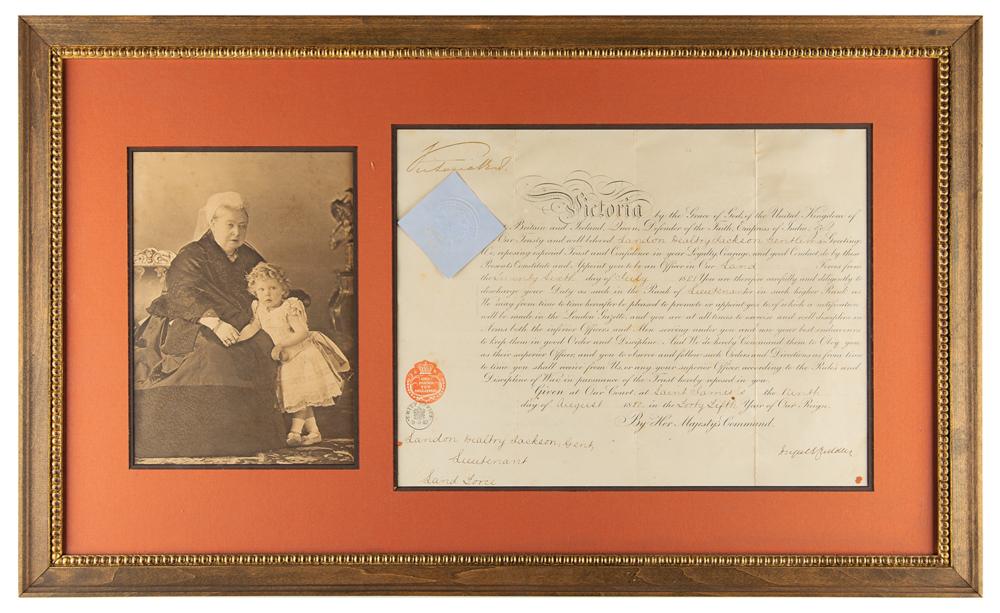 Victoria R.I.
Victoria by the Grace of God, of the United Kingdom of
Britain and Ireland, Queen, Defender of the Faith, Empress of India, &c.
Our Trusty and well beloved Landon Gentleman Greeting:
We, reposing especial Trust and Confidence in your Loyalty, Courage, and good Conduct, do by these
Presents Constitute and Appoint you to be an Officer in Our Land Forces from
the day of July You are therefore carefully and diligently to
discharge your Duty as such in the Rank of Lieutenant or in such higher Rank as
We may from time to time hereafter be pleased to promote or appoint you to, of which a notification
will be made in the London Gazette, and you are at all times to exercise and well discipline in
Arms both the inferior Officers and Men serving under you and use your best endeavours
to keep them in good Order and Discipline. And We do hereby Command them to Obey you
as their superior Officer, and you to observe and follow such Orders and Directions as from time
to time you shall receive from Us, or any your superior Officer, according to the Rules and
Discipline of War, in pursuance of the Trust hereby reposed in you.
Given at Our Court, at Saint James's the Ninth
day of August 1882 in the Forty Fifth Year of Our Reign.
By Her Majesty's Command.
Landon Jackson, Gent,
Lieutenant
Land Force